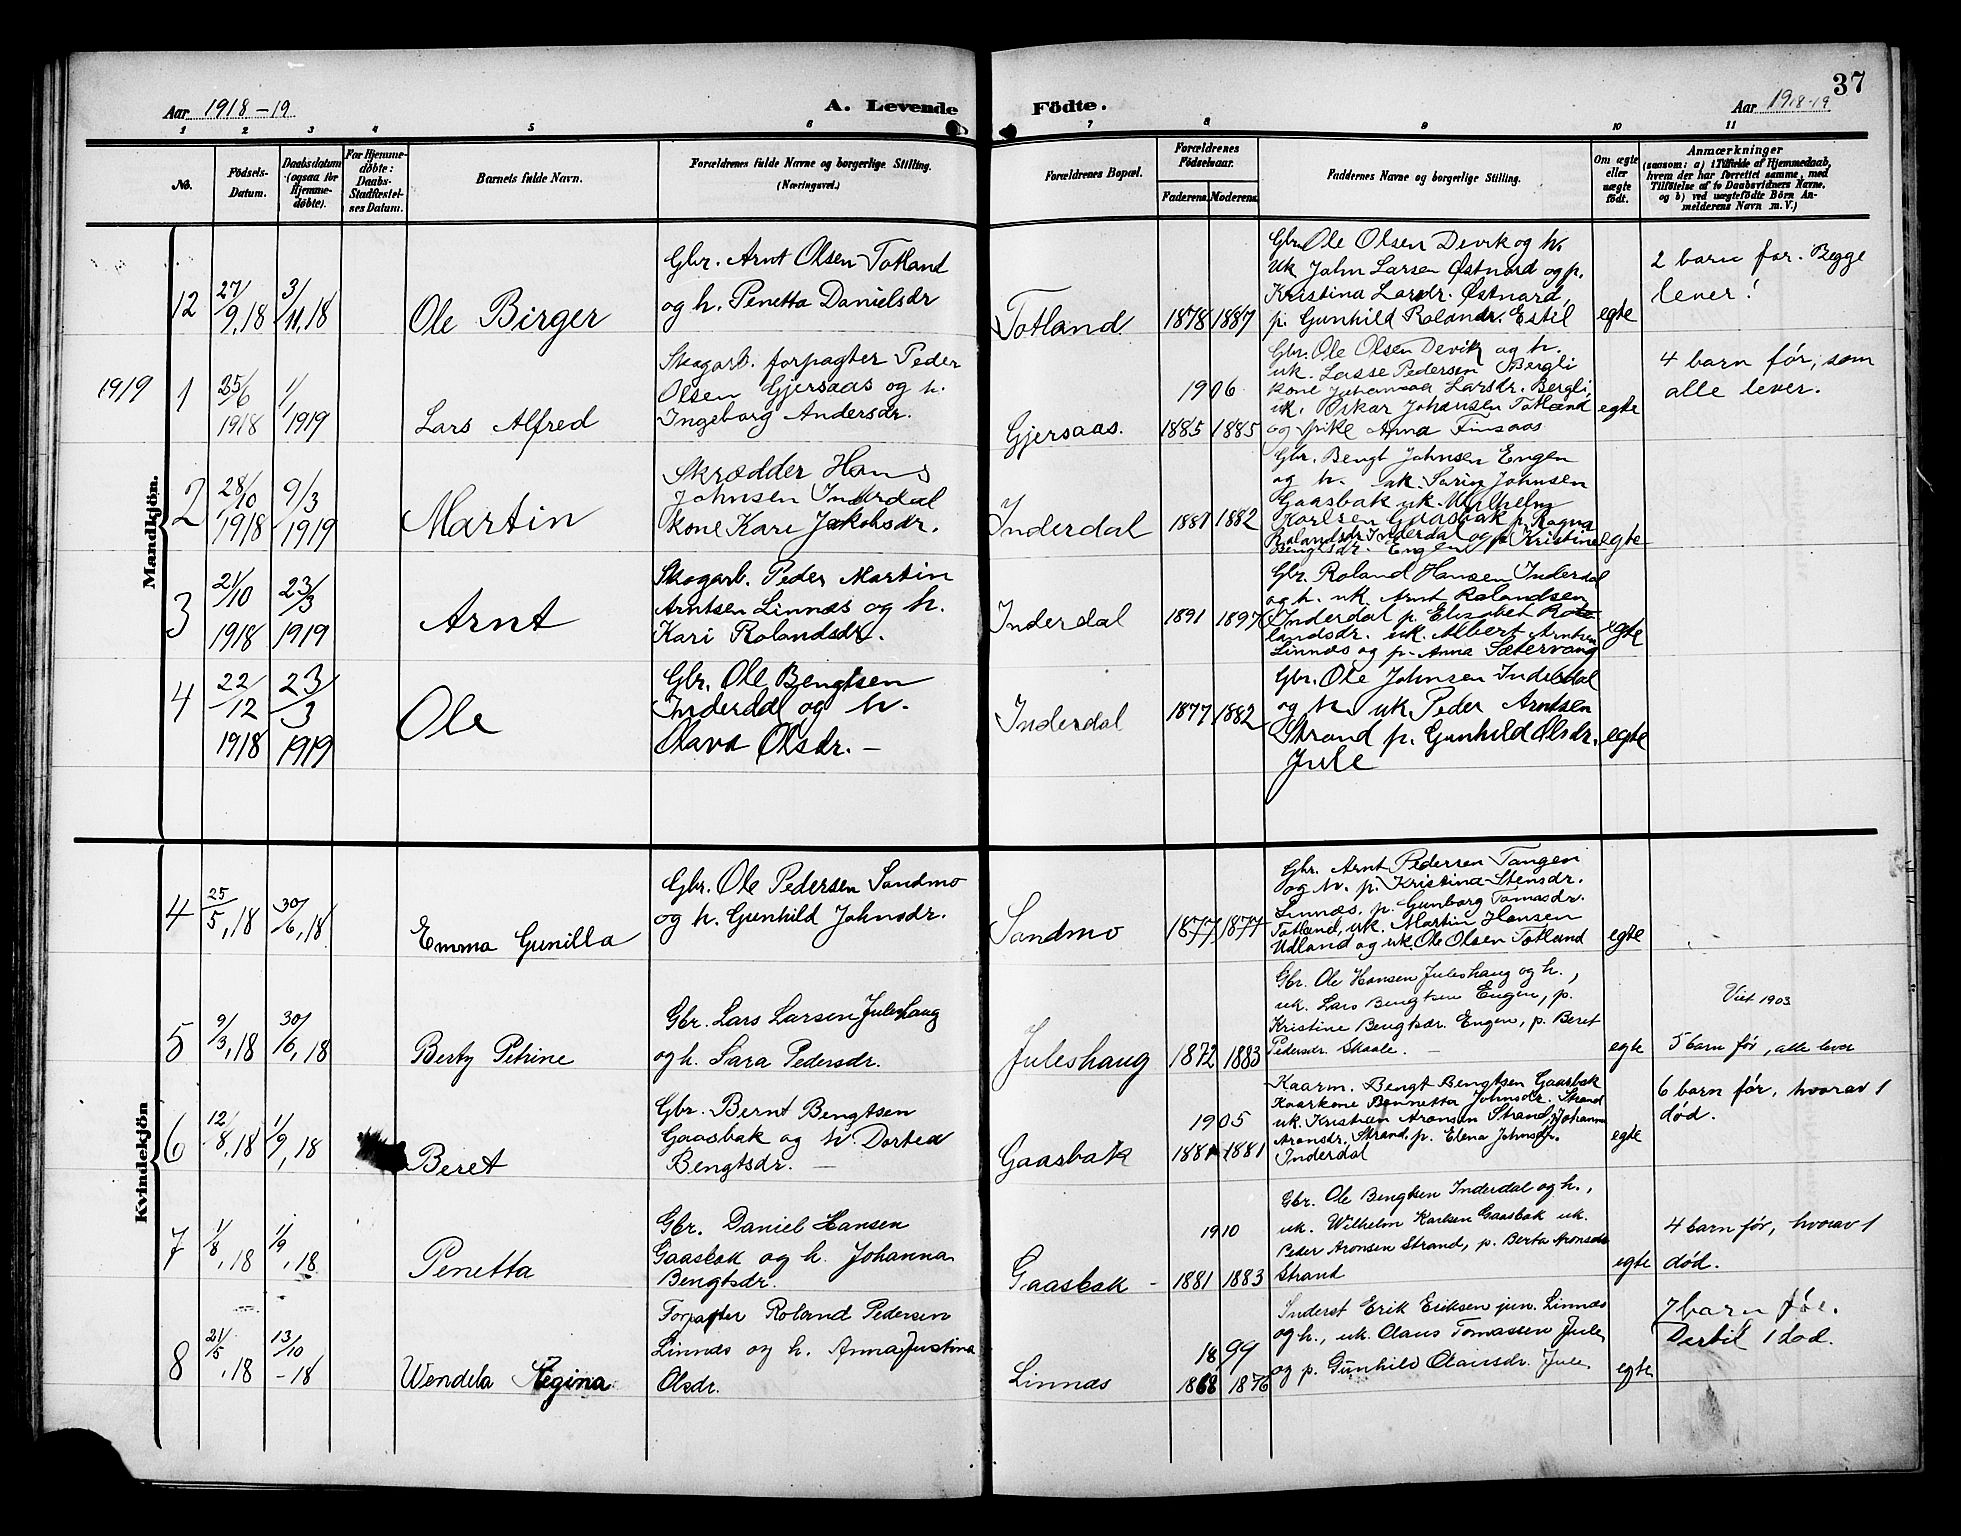 37
Aar 1918-19
A. Levende
Födte.
Aar 1918-19
1 2 3 4 5 6 7 8 9 10 11
No.
Födsels-
Datum.
Daabsdatum
(ogsaa for
Hjemme-
döbte).
For Hjemme-
döbte:
Daabs-
Stadfæstel-
ses Datum.
Barnets fulde Navn.
Forældrenes fulde Navne og borgerlige Stilling.
(Næringsvei.)
Forældrenes Bopæl.
Forældrenes
Födselsaar.
Faderens. Moderens.
Faddernes Navne og borgerlige Stilling.
Om ægte
eller
uægte
födt.
Anmærkninger
(saasom: a) i Tilfælde af Hjemmedaab,
hvem der har forrettet samme, med
Tilföielse af to Daabsvidners Navne,
og b) ved uægtefödte Börn An-
melderens Navn m. V.)
Mandkjön.
12
27/9, 18
3/11, 18
Ole Birger
Gbr. Arnt Olsen Totland
og h. Penetta Danielsdr
Totland
1878 1887
Gbr. Ole Olsen Devik og h.
Uk John Larsen Østnord og p.
Kristina Larsdr. Østnord,
p. Gunhild Rolandr. Estil
egte
2 barn før. Begge
lever!
1919
1
25/6
1918
1/1
1919
Lars Alfred
Skogarb. forpagter Peder
Olsen Gjersaas og h.
Ingeborg Andersdr.
Gjersaas.
1906
1885 1885
Gbr. Ole Olsen Devik og h.
uk. Lasse Pedersen Bergli
kone Johanna Larsdr. Bergli,
uk. Oskar Johansen Totland
og pike Anna Finsaas
egte
4 barn før, som
alle lever.
2
28/10
1918
9/3
1919
Martin
Skrædder Hans
Johnsen Inderdal
kone Kari Jakobsdr.
Inderdal
1881 1882
Gbr. Bengt Johnsen Engen
og h. uk. Sarin Johnsen
Gaasbak uk. Wilhelm
Karlsen Gaasbak p. Ragna
Rolandsdr. Inderdal og p. Kristine
Bengtsdr. Engen
egte
3
21/10
1918
23/3
1919
Arnt
Skogarb. Peder Martin
Arntsen Linnæs og h.
Kari Rolandsdr.
Inderdal
1891 1897
Gbr. Roland Hansen Inderdal
og h. uk Arnt Rolandsen
Inderdal p. Elisabet Ro
landsdr. uk. Albert Arntsen
Linnæs og p. Anna Sætervang
egte
4
22/12
1918
23/3
1919
Ole
Gbr. Ole Bengtsen
Inderdal og h.
Olava Olsdr. –
Inderdal
1877 1882
Gbr. Ole Johnsen Inderdal
og h. uk. Peder Arntsen
Strand p. Gunhild Olsdr.
Jule
egte
Kvindekjön
4
25/5, 18
30/6, 18
Emma Gunilla
Gbr. Ole Pedersen Sandmo
og h. Gunhild Johnsdr.
Sandmo
1877 1877
Gbr. Arnt Pedersen Tangen
og h. p. Kristina Stensdr.
Linnæs, p. Gunborg Tomasdr.
Totland, uk. Martin Hansen
Udland og uk. Ole Olsen Totland
egte
5
9/3, 18
30/6, 18
Berty Petrine
Gbr. Lars Larsen Juleshaug
og h. Sara Pedersdr.
Juleshaug
1872 1883
Gbr. Ole Hansen Juleshaug og h.,
uk. Lars Bengtsen Engen, p.
Kristine Bengtsdr. Engen, p. Beret
Pedersdr. Skaale. –
egte
Viet 1903
5 barn før, alle lever
6
12/8, 18
1/9, 18
Beret
Gbr. Bernt Bengtsen
Gaasbak og h. Dortea
Bengtsdr. –
Gaasbak
1905
1881 1881
Kaarm. Bengt Bengtsen Gaasbak
Kaarkone Bennetta Johnsdr. Strand
uk. Kristian Aronsen Strand, Johanna
Aronsdr. Strand, p. Elena Johnsdr.
Inderdal
egte
6 barn før, hvorav 1
død.
7
1/8, 18
1/9, 18
Penetta
Gbr. Daniel Hansen
Gaasbak og h. Johanna
Bengtsdr.
Gaasbak –
1910
1881 1883
Gbr. Ole Bengtsen Inderdal og h.,
uk. Wilhelm Karlsen Gaasbak uk.
Peder Aronsen Strand, p. Berta Aronsdr
Strand
egte
4 barn før, hvorav 1
død.
8
21/5, 18
13/10 – 18
Wendela Regina
Forpagter Roland Pedersen
Linnæs og h. Anna Justina
Olsdr.
Linnæs
1899
1868 1876
Inderst Erik Eriksen jun. Linnæs
og h., uk. Olaus Tomassen Jule
og p. Gunhild Olausdr. Jule
egte
7 barn før.
Dertil 1 død.